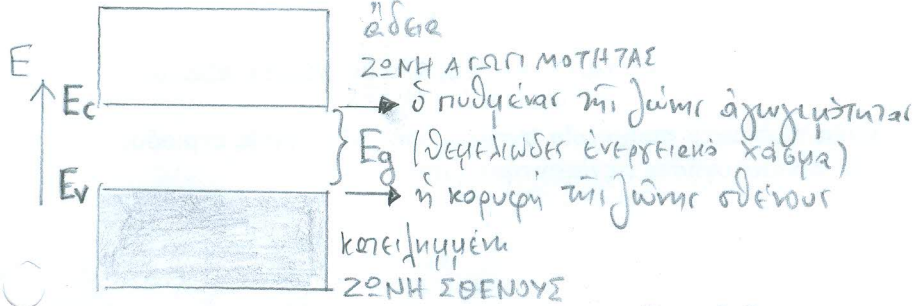 ἡ
ἄδεια
E
ΖΩΝΗ ΑΓΩΓΙΜΟΤΗΤΑΣ
Ec
ὁ πυθμένας τῆς ζώνης ἀγωγιμότητας
Eg (θεμελιῶδες ἐνεργειακό χάσμα)
Ev
ἡ κορυφή τῆς ζώνης σθένους
κατειλημμένη
ΖΩΝΗ ΣΘΕΝΟΥΣ